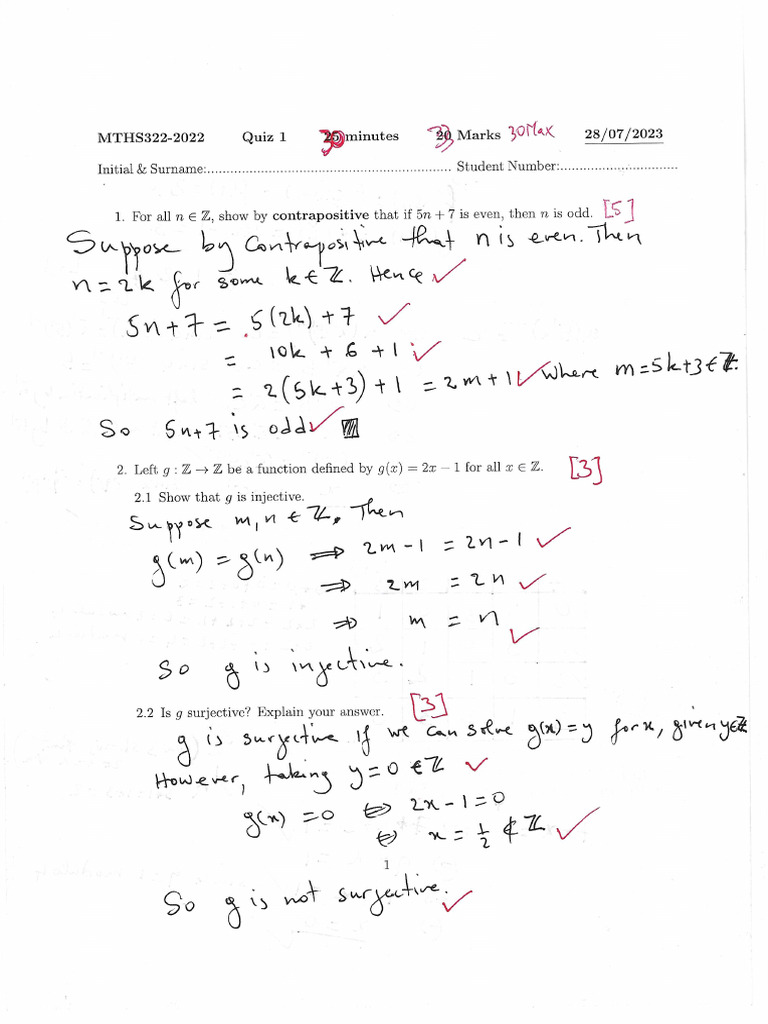 MTHS322-2022 Quiz 1 30 minutes 33 Marks 30 Max 28/07/2023
Initial & Surname:........................................................ Student Number:............................
1. For all n ∈ ℤ, show by contrapositive that if 5n + 7 is even, then n is odd. [5]
Suppose by Contrapositive that n is even. Then
n = 2k for some k ∈ ℤ. Hence ✓
5n+7 = 5(2k) + 7 ✓
= 10k + 6 + 1 ✓
= 2(5k+3) + 1 = 2m+1 ✓ where m=5k+3 ∈ ℤ.
So 5n+7 is odd ✓
2. Left g : ℤ → ℤ be a function defined by g(x) = 2x − 1 for all x ∈ ℤ. [3]
2.1 Show that g is injective.
Suppose m, n ∈ ℤ. Then
g(m) = g(n) ⟹ 2m-1 = 2n-1 ✓
⟹ 2m = 2n ✓
⟹ m = n ✓
So g is injective.
2.2 Is g surjective? Explain your answer. [3]
g is surjective if we can solve g(x)=y for x, given y∈ℤ
However, taking y=0 ∈ ℤ ✓
g(x) = 0 ⟺ 2x-1=0
⟺ x = 1/2 ∉ ℤ ✓
1
So g is not surjective. ✓